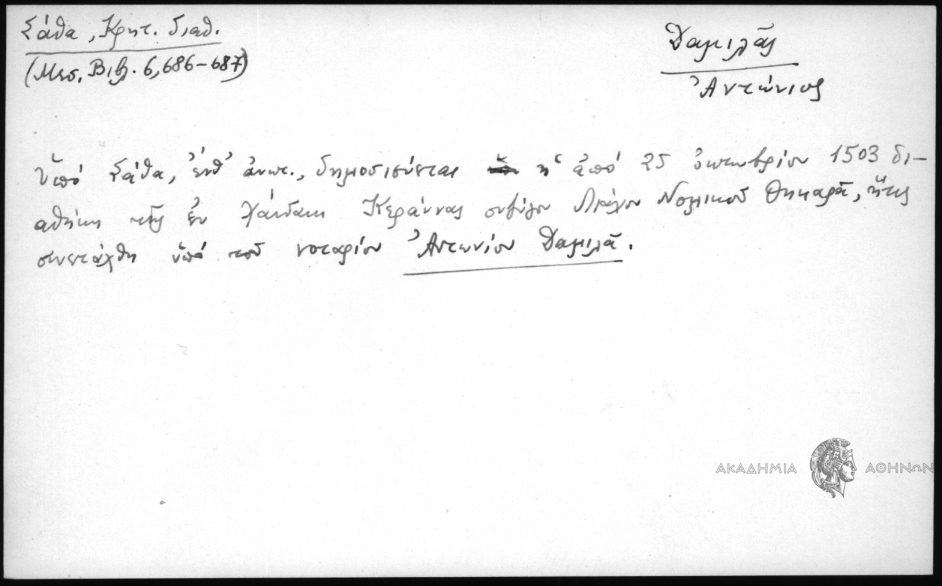 Σάθα, Κρητ. διαθ.
(Μεσ. Βιβλ. 6, 686-687)
Δαμιλᾶς
Ἀντώνιος
Ὑπό Σάθα, ἐνθ' ἀνωτ., δημοσιεύεται ἡ ἀπό 25 ὀκτωβρίου 1503 δι-
αθήκη τῆς ἐν Χάνδακι Κεράννας συζύγου Μάρχου Νομικοῦ Θηκαρᾶ, ἥτις
συνετάχθη ὑπό τοῦ νοταρίου Ἀντωνίου Δαμιλᾶ.
ΑΚΑΔΗΜΙΑ ΑΘΗΝΩΝ